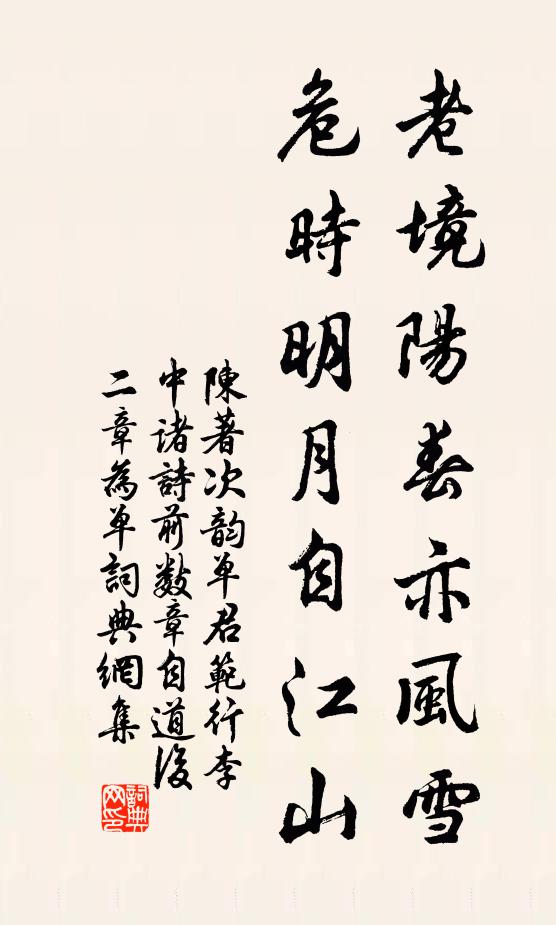 老境陽春亦風雪
危時明月自江山
陳著次韵单君範行李
中诸詩前数章自道後
二章為单詞典網集
詞典网印